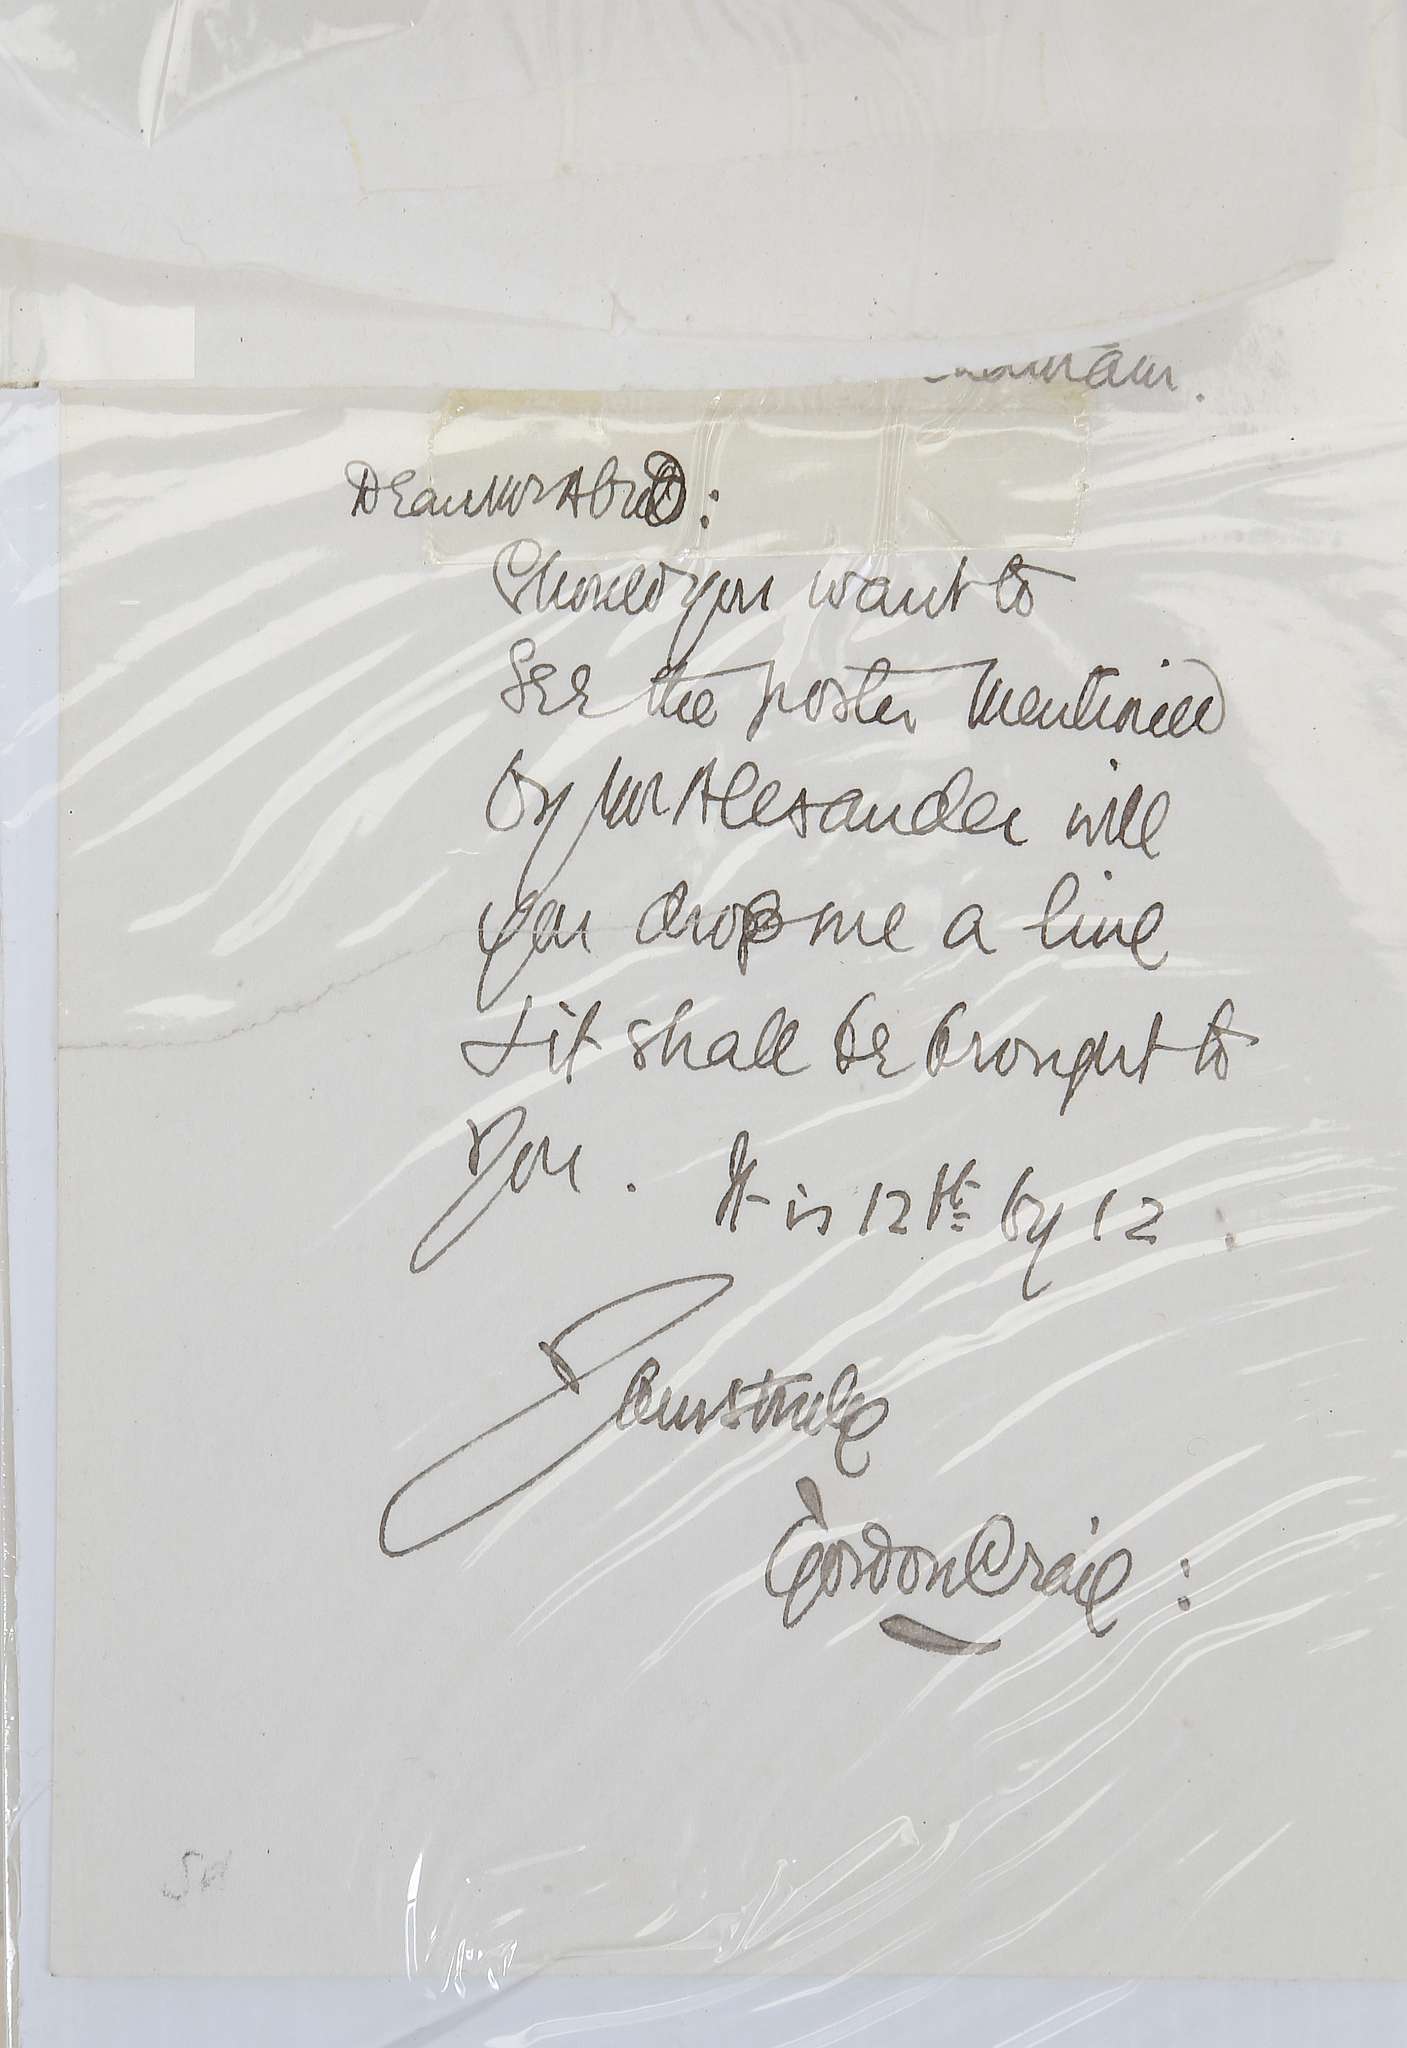 Dear Mr
Should you want to
See the poster mentioned
by Mr Alexander will
you drop me a line
& it shall be brought to
you. It is 12 ft by 12
Yours truly
Gordon Craig: